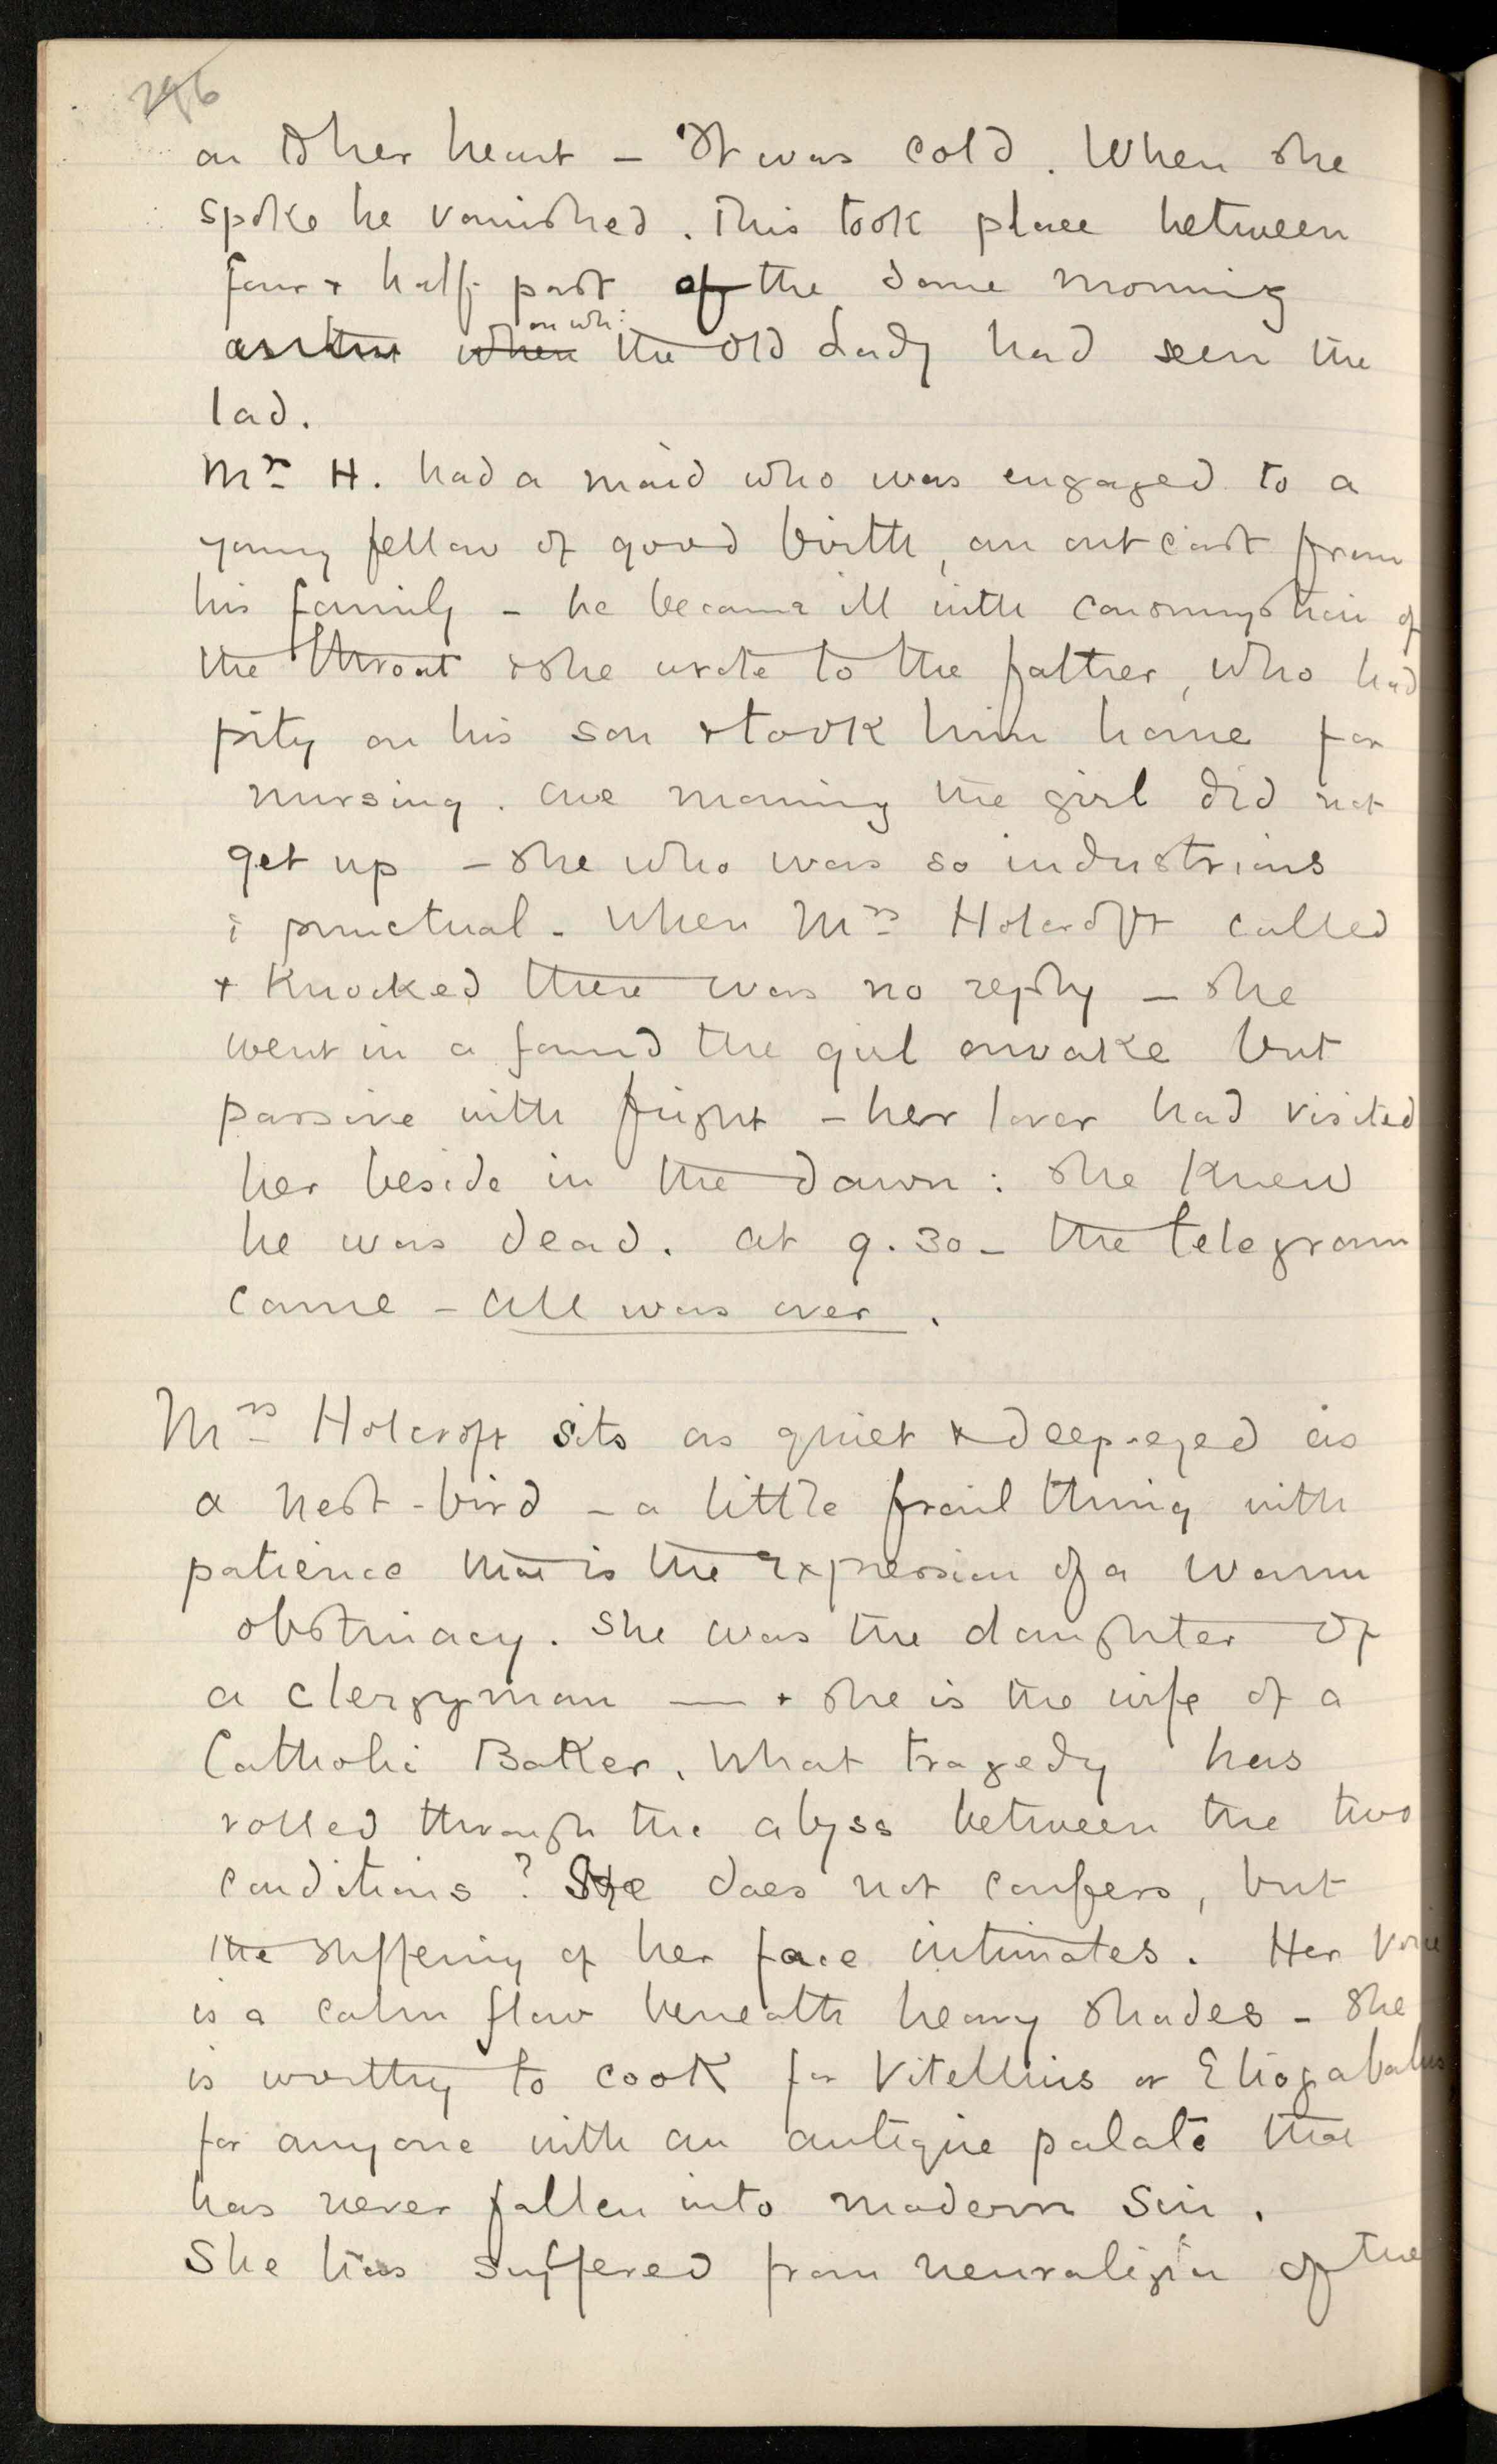 296
on to her heart – It was cold. When she
spoke he vanished. This took place between
four & half-past of the same morning
on wh:
when the old Lady had seen the
lad.
Mrs H. had a maid who was engaged to a
young fellow of good birth, an outcast from
his family – he became ill with consumption of
the throat & she wrote to the father, who had
pity on his son & took him home for
nursing. One morning the girl did not
get up – she who was so industrious
& punctual – When Mrs Holcroft called
& knocked there was no reply – she
went in a found the girl awake but
passive with fright – her lover had visited
her beside in the dawn: she knew
he was dead. At 9.30 – the telegram
came – all was over.
Mrs Holcroft sits as quiet & deep-eyed as
a nest-bird – a little frail thing with
patience that is the expression of a warm
obstinacy. She was the daughter of
a clergyman — & she is the wife of a
Catholic Baker. What tragedy has
rolled through the abyss between the two
conditions? She does not confess, but
the suffering of her face intimates. Her voice
is a calm flow beneath heavy shades – She
is worthy to cook for Vitellius or Eliogabalus
for anyone with an antique palate that
has never fallen into modern sin.
She has suffered from neuralgia of the